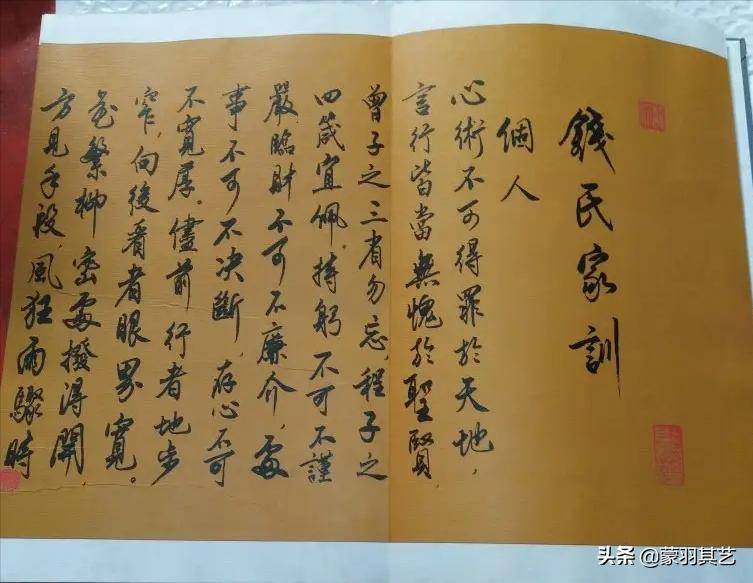 錢氏家訓
個人
心術不可得罪於天地，
言行皆當無愧於聖賢，
曾子之三省勿忘，程子之
四箴宜佩，持躬不可不謹
嚴臨財不可不廉介，處
事不可不决斷，存心不可
不寬厚。儘前行者地步
窄，向後看者眼界寬。
花繁柳密處撥得開
方見手段，風狂雨驟時
头条 @蒙羽其艺